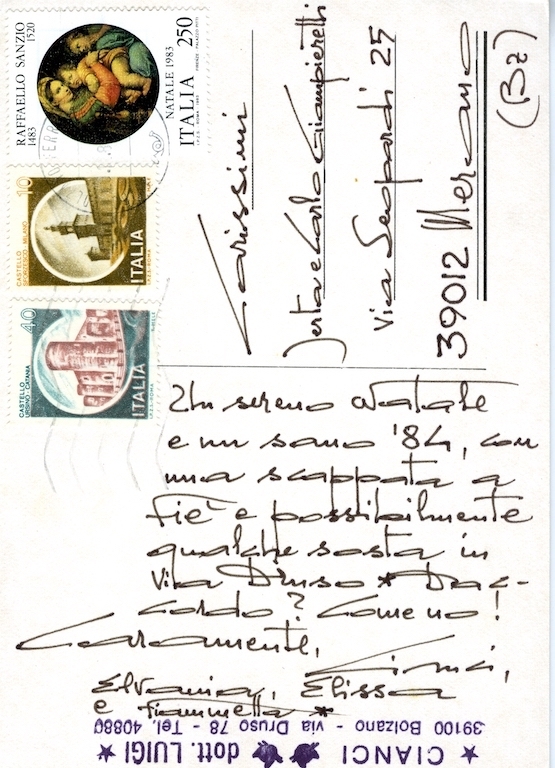 RAFFAELLO SANZIO
1483 1520
NATALE 1983
ITALIA 250
I.P.Z.S. - ROMA - 1983
10
CASTELLO
SFORZESCO - MILANO
ITALIA
I.P.Z.S. - ROMA
40
CASTELLO
URSINO - CATANIA
ITALIA
I.P.Z.S. - ROMA
Carissimi
Carlo Giampieretti
Via Leopardi 25
39012 Merano
(Bz)
Un sereno Natale
e un sano '84, con
una scappata a
Fiè e possibilmente
qualche sosta in
Via Druso * Dac-
cordo? Come no!
Caramente,
Elissa
e Fiammetta *
★ CIANCI dott. LUIGI ★
39100 Bolzano - via Druso 78 - Tel. 40880